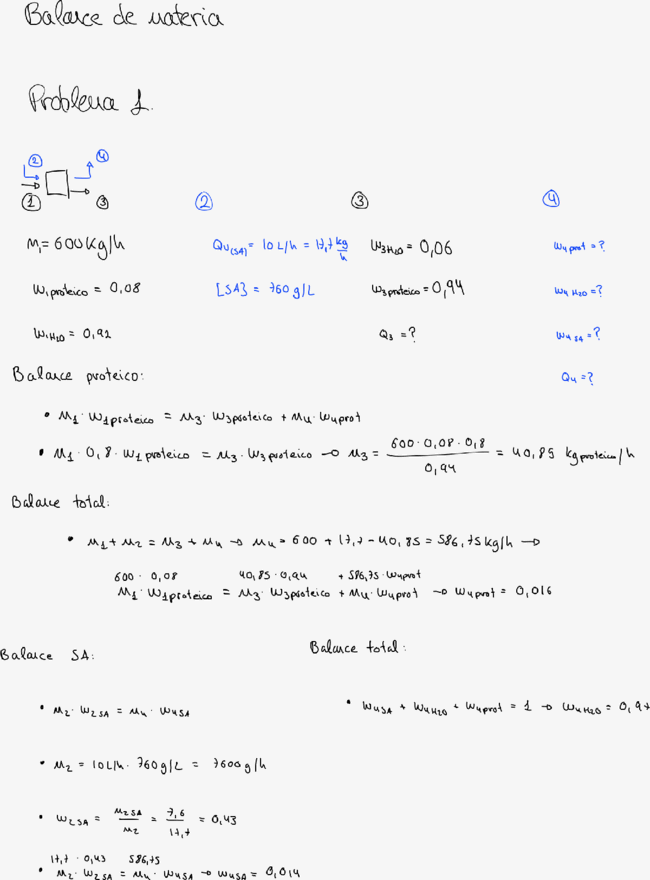 Balance de materia
Problema 1.
② ④
① ③
② ③ ④
M₁ = 600 Kg/h Qv(SA) = 10 L/h = 17,7 kg/h W3H2O = 0,06 W4prot = ?
W1proteico = 0,08 [SA] = 760 g/L W3proteico = 0,94 W4H2O = ?
W1H2O = 0,92 Q3 = ? W4SA = ?
Balance proteico: Q4 = ?
• M1 · W1proteico = M3 · W3proteico + M4 · W4prot
• M1 · 0,8 · W1proteico = M3 · W3proteico → M3 = 600 · 0,08 · 0,8 / 0,94 = 40,85 kg proteico/h
Balance total:
• M1 + M2 = M3 + M4 → M4 = 600 + 17,7 - 40,85 = 586,75 kg/h →
600 · 0,08 40,85 · 0,94 + 586,75 · W4prot
M1 · W1proteico = M3 · W3proteico + M4 · W4prot → W4prot = 0,016
Balance SA: Balance total:
• M2 · W2SA = M4 · W4SA • W4SA + W4H2O + W4prot = 1 → W4H2O = 0,97
• M2 = 10L/h · 760 g/L = 7600 g/h
• W2SA = M2SA / M2 = 7,6 / 17,7 = 0,43
17,7 · 0,43 586,75
• M2 · W2SA = M4 · W4SA → W4SA = 0,014